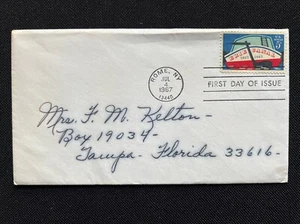 ROME, NY
JUL
4
1967
13440
FIRST DAY OF ISSUE
ERIE CANAL
Mrs. F. M. Kelton -
Box 19034 -
Tampa - Florida 33616 -